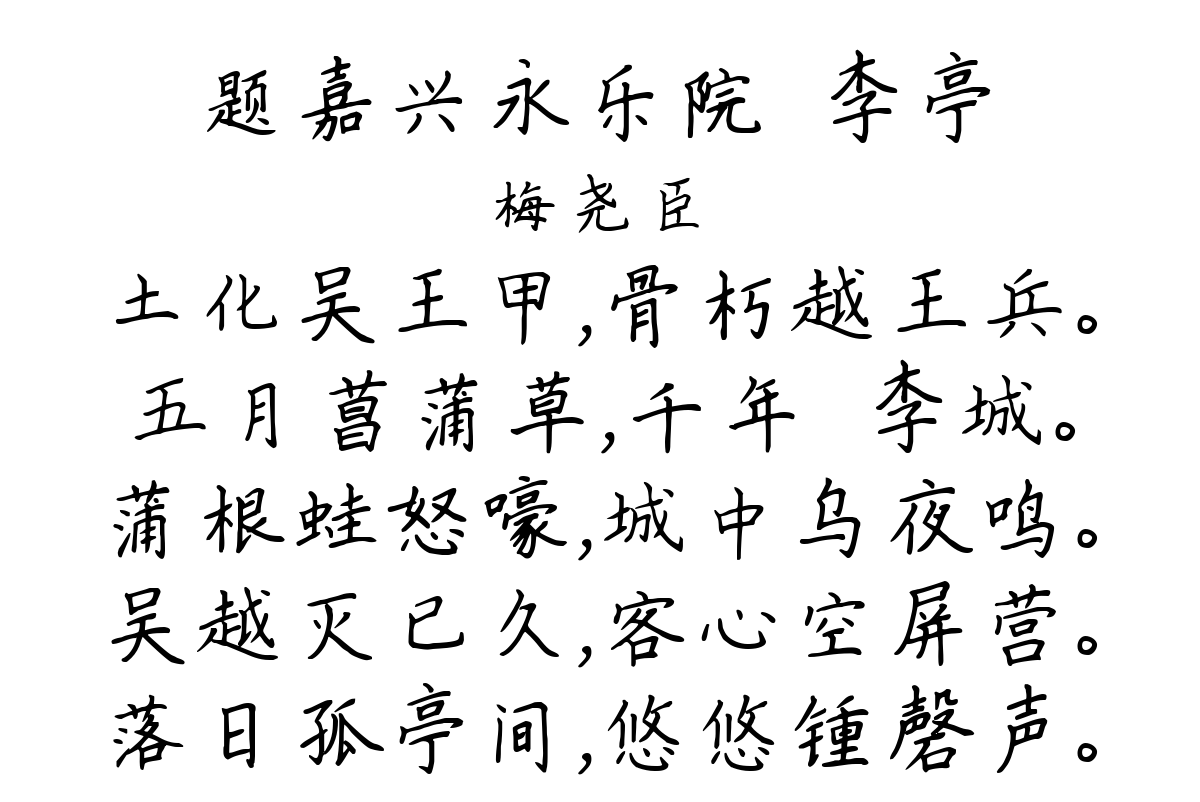 题嘉兴永乐院 李亭
梅尧臣
土化吴王甲,骨朽越王兵。
五月菖蒲草,千年 李城。
蒲根蛙怒嚎,城中乌夜鸣。
吴越灭已久,客心空屏营。
落日孤亭间,悠悠锺磬声。